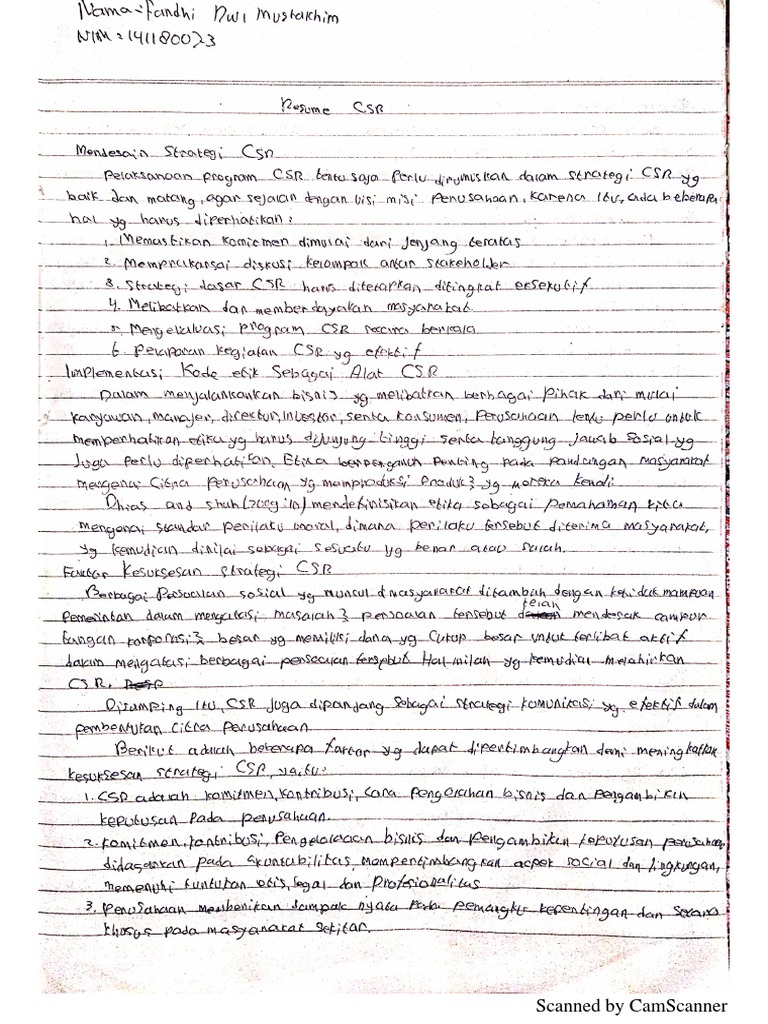 Nama = Fandhi Dwi Mustakhim
NIM = 141180073
Resume CSR
Mendesain Strategi CSR
Pelaksanaan program CSR tentu saja perlu dirumuskan dalam strategi CSR yg
baik dan matang, agar sejalan dengan visi misi perusahaan, karena itu, ada beberapa
hal yg harus diperhatikan :
1. Memastikan komitmen dimulai dari jenjang teratas
2. Memprakarsai diskusi kelompok antar stakeholder
3. Strategi dasar CSR harus diterapkan ditingkat eksekutif
4. Melibatkan dan memberdayakan masyarakat
5. Mengevaluasi program CSR secara berkala
6. pelaporan kegiatan CSR yg efektif
Implementasi Kode etik Sebagai Alat CSR
Dalam menjalankankan bisnis yg melibatkan berbagai pihak dari mulai
karyawan, manajer, direktur, investor, serta konsumen, perusahaan tentu perlu untuk
memperhatikan etika yg harus dijunjung tinggi serta tanggung jawab sosial yg
Juga perlu diperhatikan. Etika berpengaruh penting pada pandangan masyarakat
mengenai Citra perusahaan yg memproduksi produk2 yg mereka
and shah (2009:10) mendefinisikan etika sebagai pemahaman kita
mengenai standar perilaku moral, dimana perilaku tersebut diterima masyarakat,
yg kemudian dinilai sebagai sesuatu yg benar atau salah.
Faktor Kesuksesan Strategi CSR
Berbagai persoalan sosial yg muncul dimasyarakat ditambah dengan ketidakmampuan
pemerintah dalam mengatasi masalah2 persoalan tersebut telah mendesak campur
tangan korporasi2 besar yg memiliki dana yg cukup besar untuk terlibat aktif
dalam mengatasi berbagai persoalan tersebut Hal inilah yg kemudial melahirkan
CSR.
Disamping itu, CSR juga dipanjang sebagai strategi komunikasi yg efektif dalam
pembentukan Citra perusahaan.
Berikut adalah beberapa faktor yg dapat dipertimbangkan demi meningkatkan
kesuksesan strategi CSR, yaitu:
1. CSR adalah komitmen, kontribusi, cara pengelolahan bisnis dan pengambilan
keputusan pada perusahaan.
2. Komitmen, kontribusi, pengelolaan bisnis dan pengambilan keputusan perusahaan
didasarkan pada akuntabilitas, mempertimbangkan aspek social dan lingkungan,
memenuhi tuntutan etis, legal dan profesionalitas
3. perusahaan memberikan dampak nyata pada pemangku kepentingan dan secara
khusus pada masyarakat sekitar.
Scanned by CamScanner